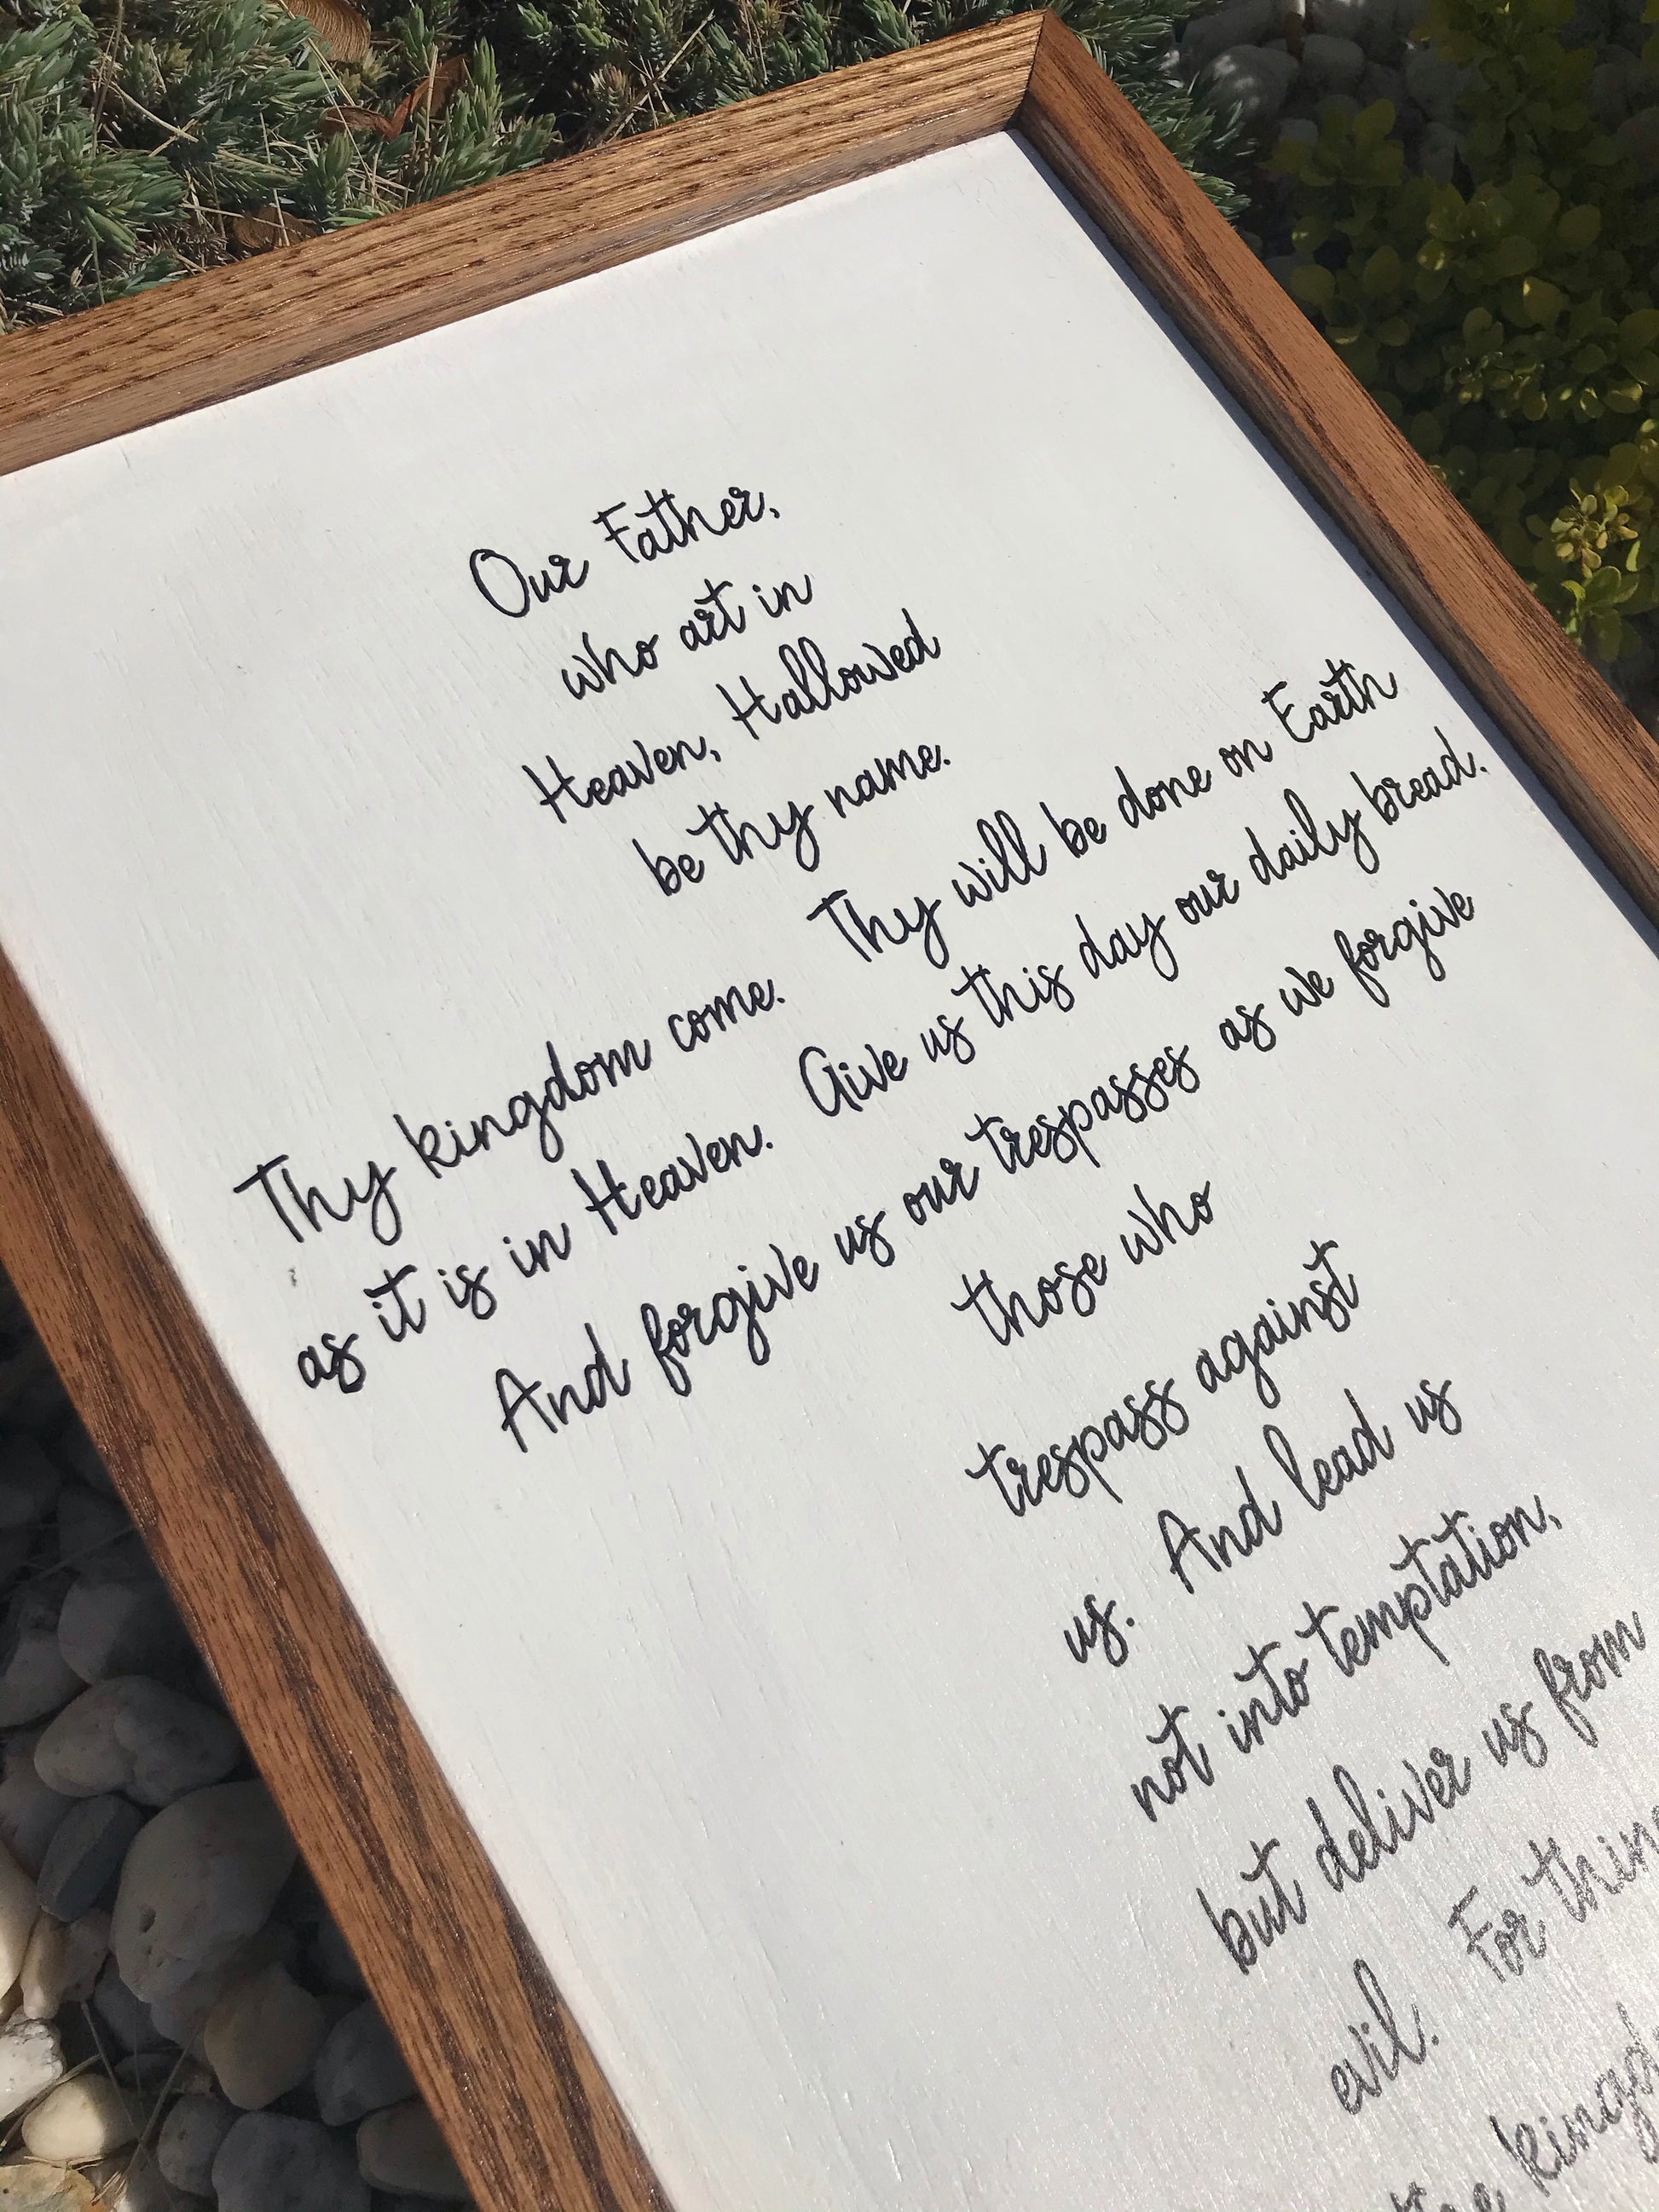 Our Father,
who art in
Heaven, Hallowed
be thy name.
Thy kingdom come. Thy will be done on Earth
as it is in Heaven. Give us this day our daily bread.
And forgive us our trespasses as we forgive
those who
trespass against
us. And lead us
not into temptation,
but deliver us from
evil. For thin
kingd